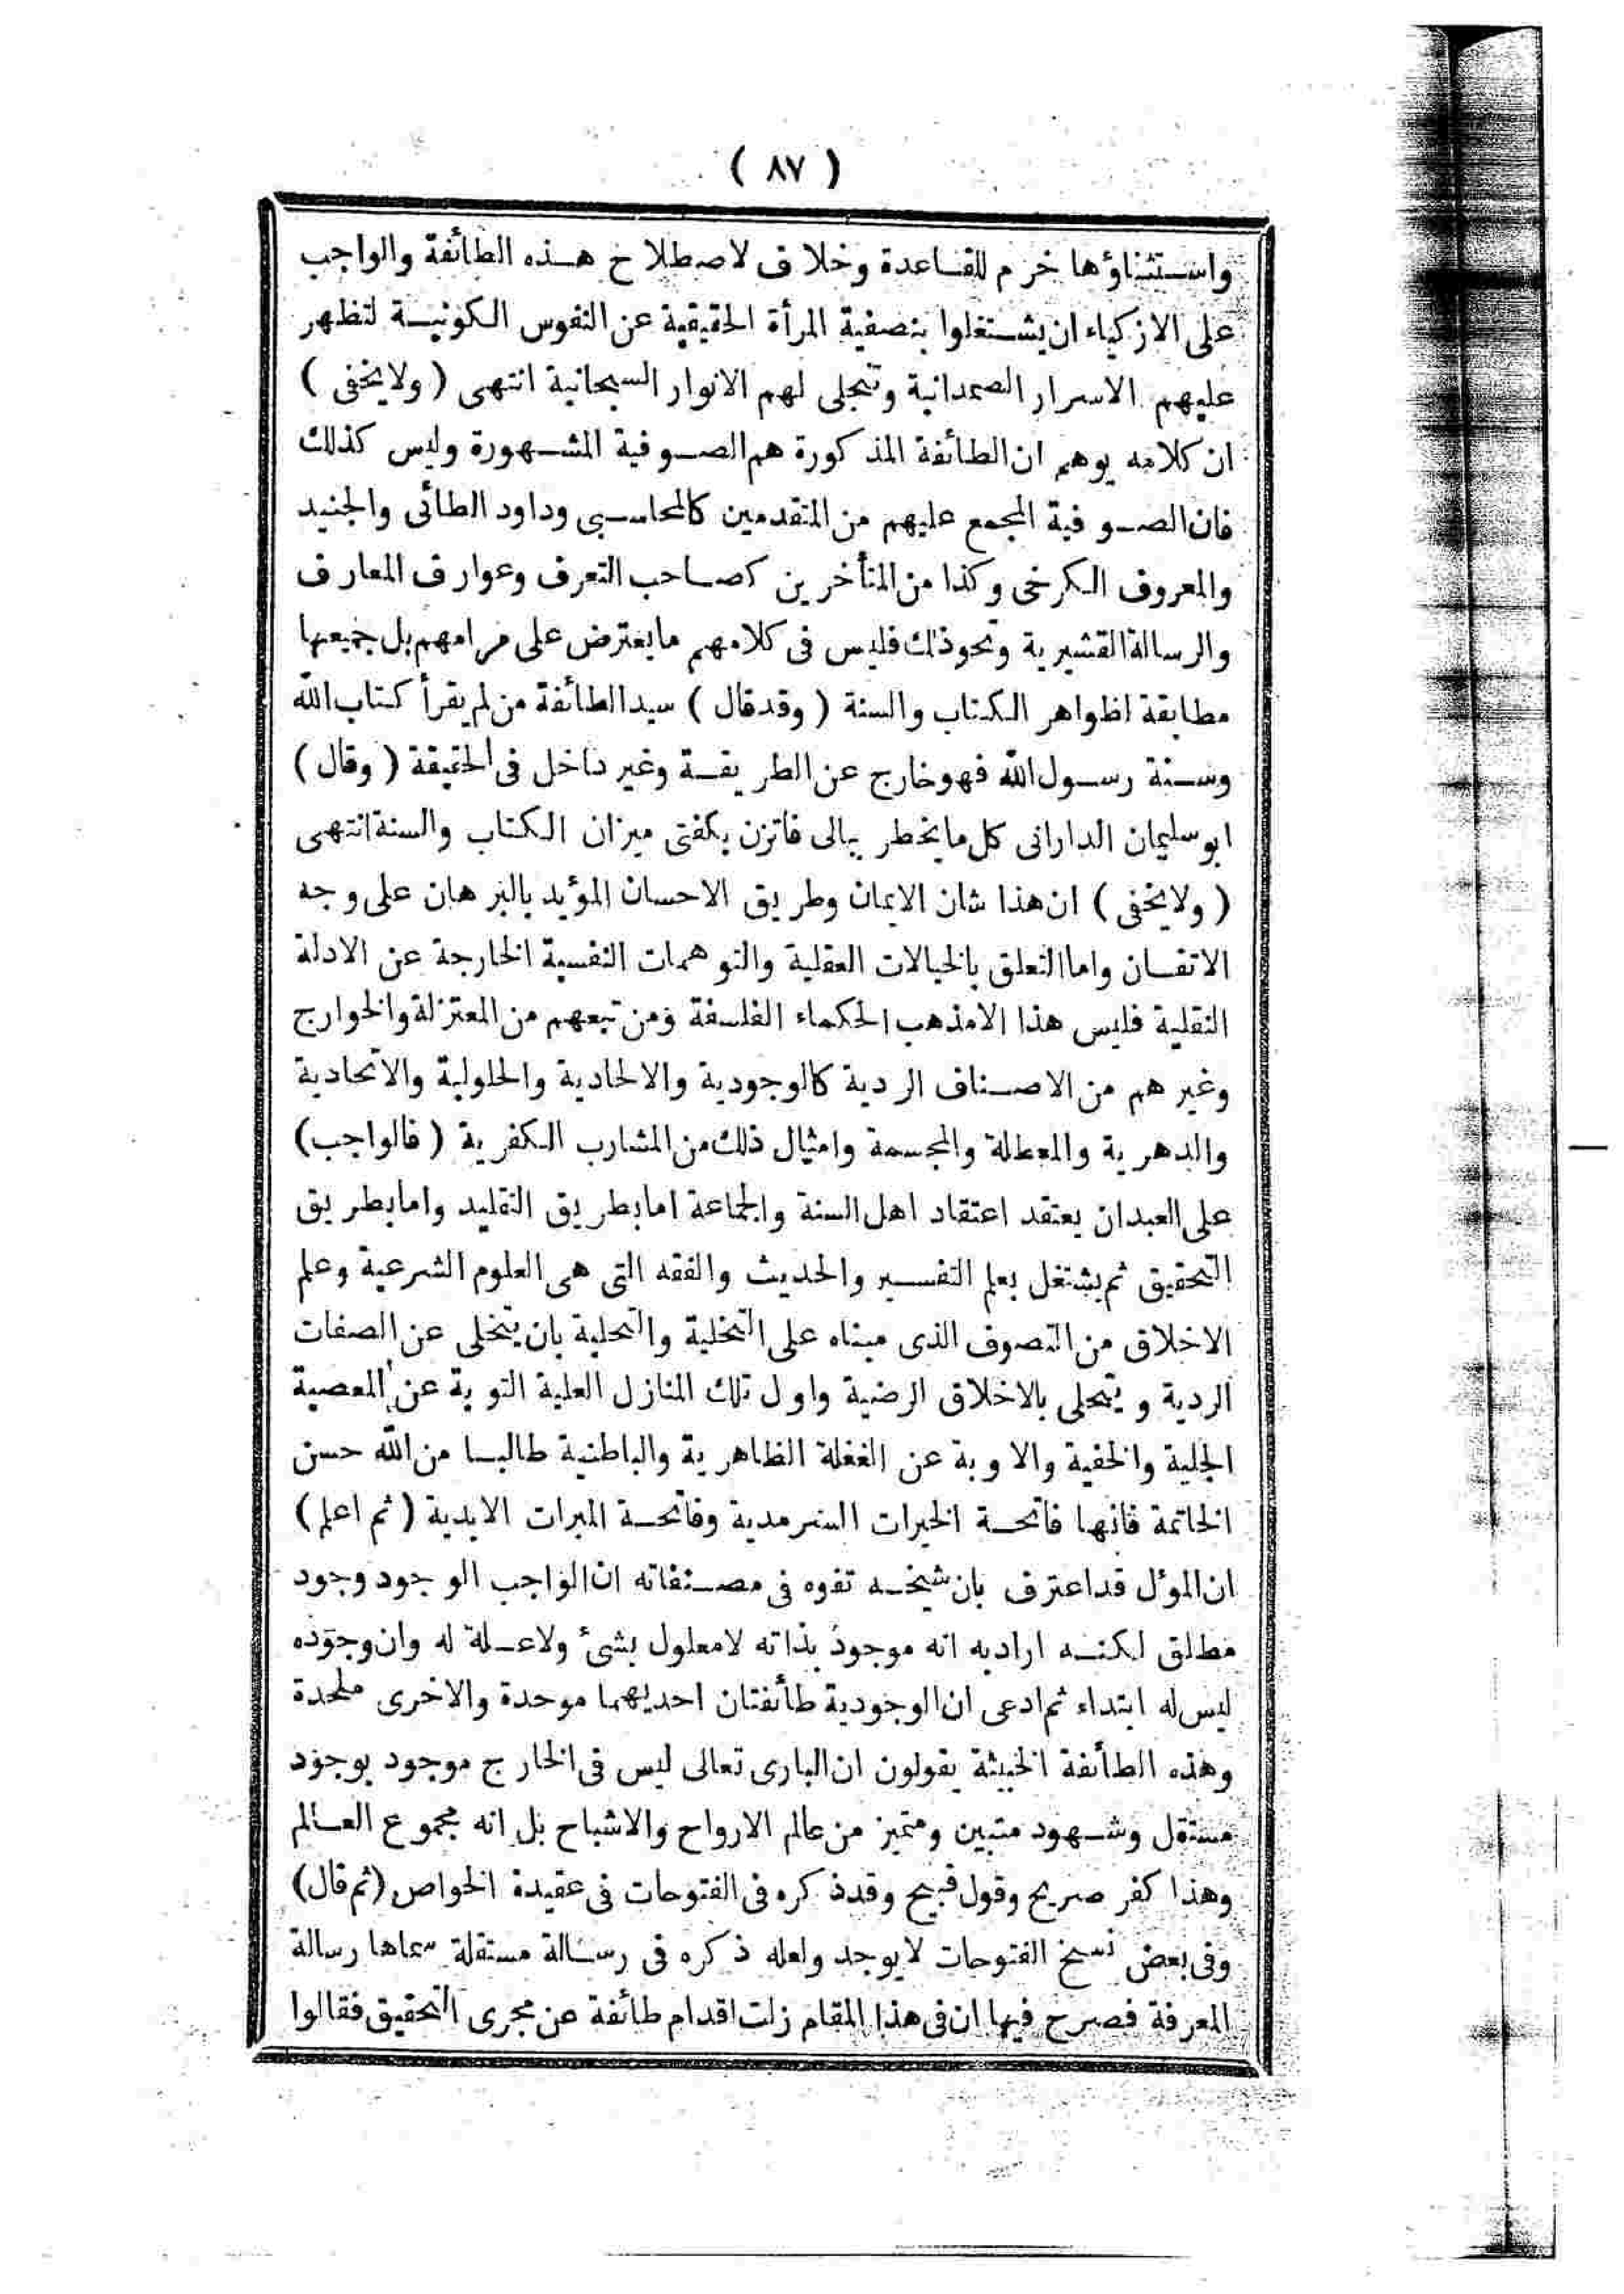 ( ٨٧ )
واستثناؤها خرم للقاعدة وخلاف لاصطلاح هذه الطائفة والواجب
على الازكياء ان يشتغلوا بتصفية المرأة الحقيقية عن النقوس الكونية لتظهر
عليهم الاسرار الصمدانية وتتجلى لهم الانوار السبحانية انتهى ( ولا يخفى )
ان كلامه يوهم ان الطائفة المذكورة هم الصوفية المشهورة وليس كذلك
فان الصوفية المجمع عليهم من المتقدمين كالمحاسبى وداود الطائى والجنيد
والمعروف الكرخى وكذا من المتأخرين كصاحب التعرف وعوارف المعارف
والرسالة القشيرية ونحو ذلك فليس فى كلامهم ما يعترض على مرامهم بل جميعها
مطابقة لظواهر الكتاب والسنة ( وقد قال ) سيد الطائفة من لم يقرأ كتاب الله
وسنة رسول الله فهو خارج عن الطريقة وغير داخل فى الحقيقة ( وقال )
ابو سليمان الدارانى كل ما يخطر ببالى فاتزن بكفتى ميزان الكتاب والسنة انتهى
( ولا يخفى ) ان هذا شان الايمان وطريق الاحسان المؤيد بالبرهان على وجه
الاتقان واما التعلق بالخيالات العقلية والتوهمات النفسية الخارجة عن الادلة
النقلية فليس هذا الا مذهب الحكماء الفلسفة ومن تبعهم من المعتزلة والخوارج
وغيرهم من الاصناف الردية كالوجودية والالحادية والحلولية والاتحادية
والدهرية والمعطلة والمجسمة وامثال ذلك من المشارب الكفرية ( فالواجب)
على العبد ان يعتقد اعتقاد اهل السنة والجماعة اما بطريق التقليد واما بطريق
التحقيق ثم يشتغل بعلم التفسير والحديث والفقه التى هى العلوم الشرعية وعلم
الاخلاق من التصوف الذى مبناه على التخلية والتحلية بان يتخلى عن الصفات
الردية ويتحلى بالاخلاق الرضية واول تلك المنازل العلية التوبة عن المعصية
الجلية والخفية والاوبة عن الغفلة الظاهرية والباطنية طالبا من الله حسن
الخاتمة فانها فاتحة الخيرات السرمدية وفاتحة المبرات الابدية ( ثم اعلم )
ان المؤل قد اعترف بان شيخه تفوه فى مصنفاته ان الواجب الوجود وجود
مطلق لكنه اراد به انه موجود بذاته لا معلول بشئ ولا علة له وان وجوده
ليس له ابتداء ثم ادعى ان الوجودية طائفتان احديهما موحدة والاخرى ملحدة
وهذه الطائفة الخبيثة يقولون ان البارى تعالى ليس فى الخارج موجود بوجود
مستقل وشهود متبين ومتميز من عالم الارواح والاشباح بل انه مجموع العالم
وهذا كفر صريح وقول قبيح وقد ذكره فى الفتوحات فى عقيدة الخواص (ثم قال)
وفى بعض نسخ الفتوحات لا يوجد ولعله ذكره فى رسالة مستقلة سماها رسالة
المعرفة فصرح فيها ان فى هذا المقام زلت اقدام طائفة عن مجرى التحقيق فقالوا